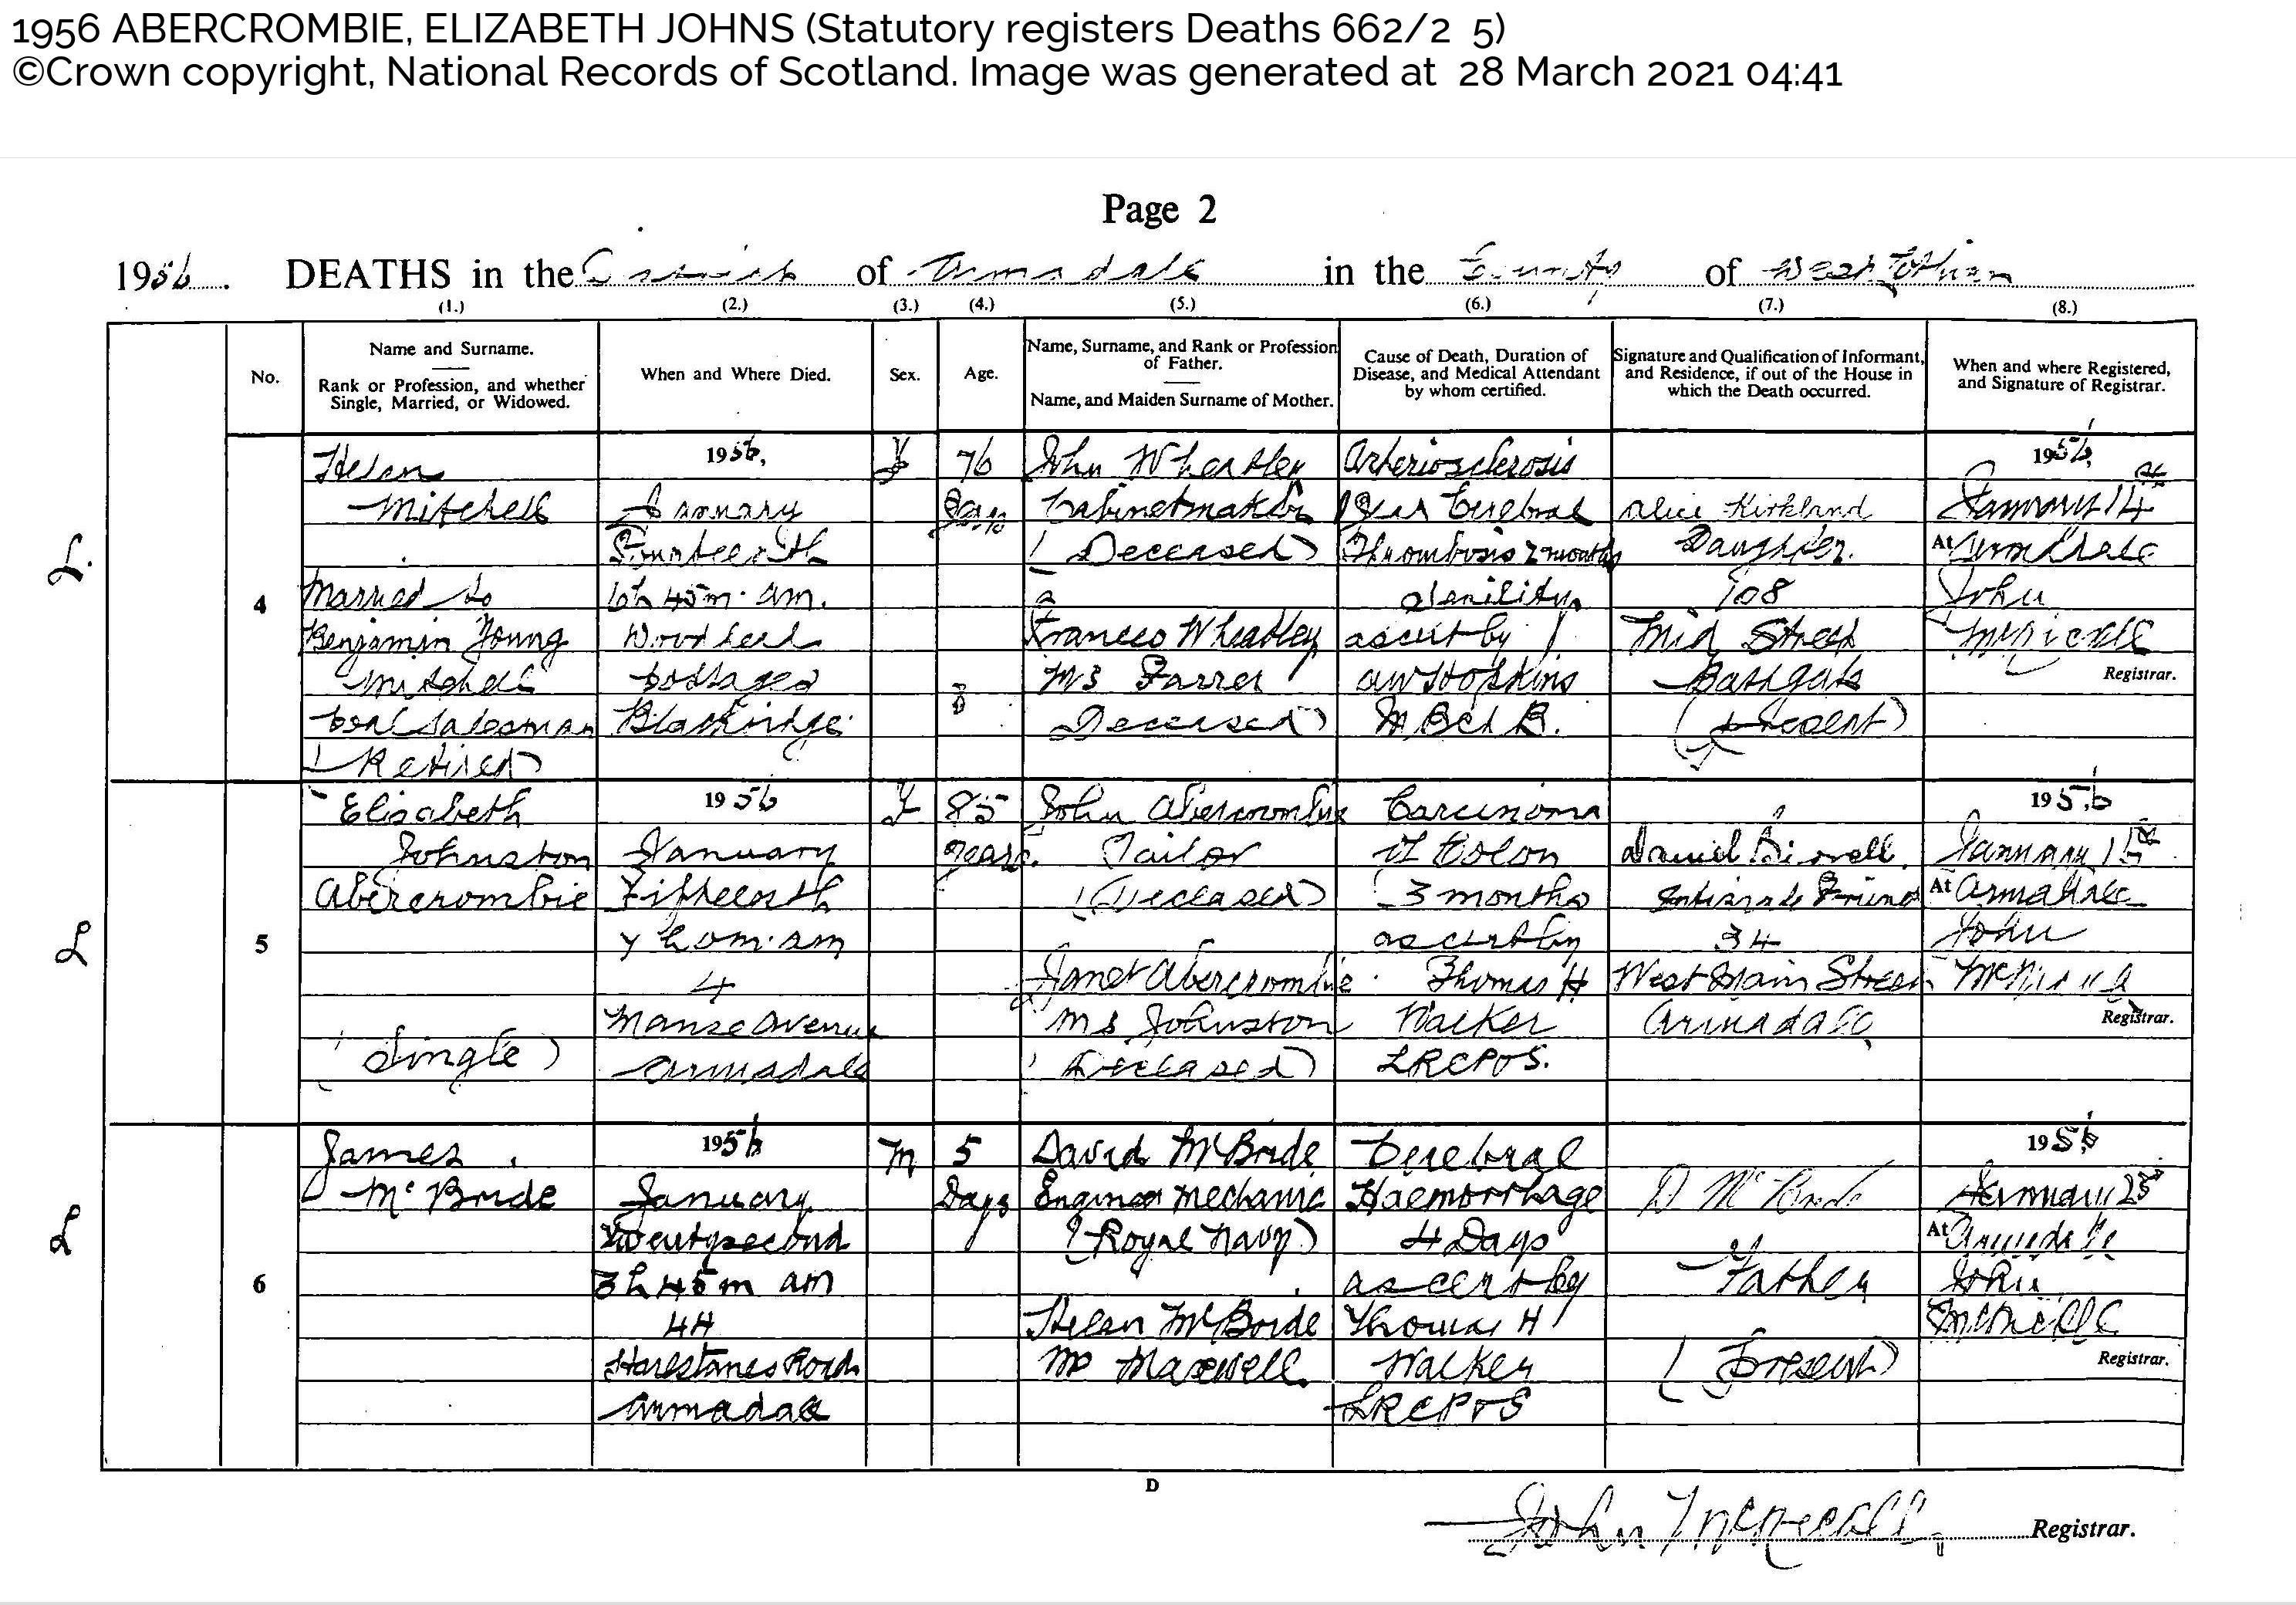 1956 ABERCROMBIE, ELIZABETH JOHNS (Statutory registers Deaths 662/2 5)
©Crown copyright, National Records of Scotland. Image was generated at 28 March 2021 04:41
Page 2
1956. DEATHS in the District of Armadale in the County of West Lothian
(1.) (2.) (3.) (4.) (5.) (6.) (7.) (8.)
No.
Name and Surname.
Rank or Profession, and whether
Single, Married, or Widowed.
When and Where Died.
Sex.
Age.
Name, Surname, and Rank or Profession
of Father.
Name, and Maiden Surname of Mother.
Cause of Death, Duration of
Disease, and Medical Attendant
by whom certified.
Signature and Qualification of Informant,
and Residence, if out of the House in
which the Death occurred.
When and where Registered,
and Signature of Registrar.
L.
4
Helen
Mitchell
Married to
Benjamin Young
Mitchell
Coal Salesman
(Retired)
1956,
January
Fourteenth
45m. am.
Woodhead
Cottages
Blackridge
F
76
Years
John Wheatley
Cabinetmaker
(Deceased)
Frances Wheatley
MS Farrer
(Deceased)
Arteriosclerosis
1 year Cerebral
Thrombosis 2 months
Senility
as cert by
AW Hopkins
M.B Ch B.
Alice Kirkland
Daughter.
108
Mid Street
Bathgate
(Present)
1956,
January 14th
At Armadale
John
McNicall
Registrar.
L
5
Elizabeth
Johnston
Abercrombie
(Single)
1956
January
Fifteenth
7h 0m. am
4
Manse Avenue
Armadale
F
85
years.
John Abercrombie
Tailor
(Deceased)
Janet Abercrombie
MS Johnston
(Deceased)
Carcinoma
of Colon
3 months
as cert by
Thomas H
Walker
LRCP&S.
Daniel Birrell.
Intimate Friend
34
West Main Street
Armadale
1956
January 15th
At Armadale
John
Registrar.
L
6
James
McBride
1956
January
Twentysecond
3h 45m am
44
Harestanes Road
Armadale
M
5
Days
David McBride
Engineer Mechanic
(Royal Navy)
Helen McBride
MS Maxwell.
Cerebral
Haemorrhage
4 Days
as cert by
Thomas H
Walker
LRCP&S
D McBride
Father
(Present)
1956
January
At Armadale
John
Registrar.
D
John Registrar.